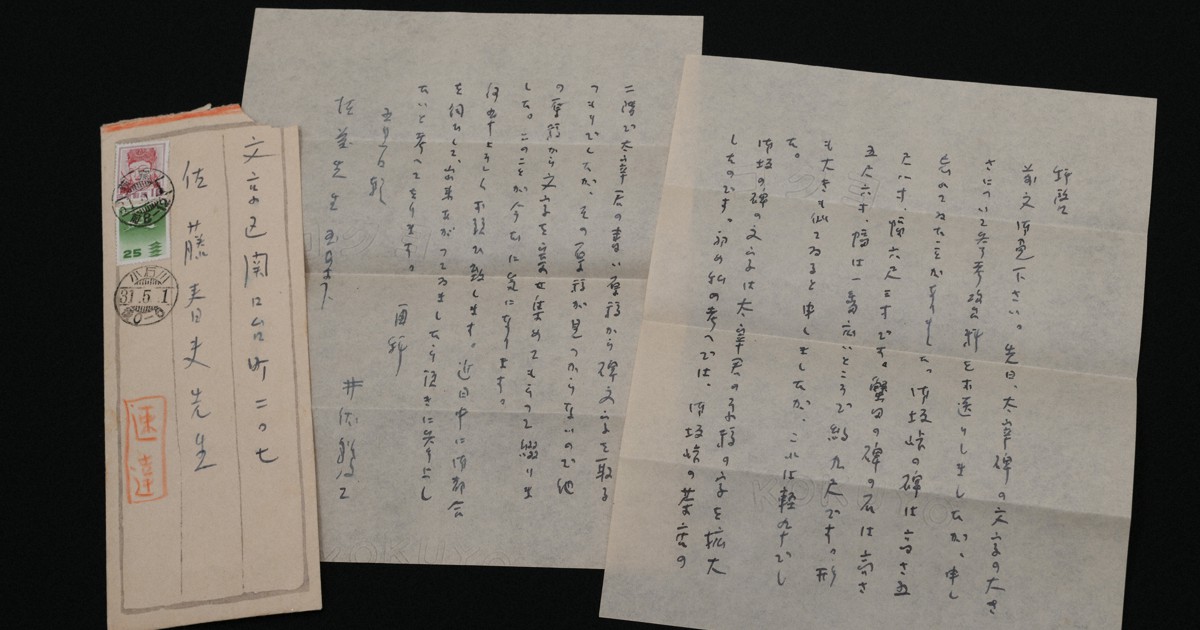 文京区関口台町二〇七
佐藤春夫先生
速達
25
小石川
31.5.1
拝啓
前文御免下さい。先日、太宰碑の文字の大き
さについて参考資料をお送りしましたが、申し
忘れてゐたことがありました。御坂峠の碑は高さ五
尺八寸、幅六尺三寸です。蟹田の碑の石は高さ
五尺六寸、幅は一番広いところで約九尺です。形
も大きさも似てゐると申しましたが、これは軽卒でし
た。
御坂の碑の文字は太宰君の原稿の字を拡大
したのです。初め私の考へでは、御坂峠の茶店の
二階で太宰君の書いた原稿から碑文字を取る
つもりでしたが、その原稿が見つからないので他
の原稿から文字を寄せ集めてもらつて綴りま
した。このことが今もつて気になります。
何卒よろしくお願ひ致します。近日中に御都合
を伺ひして、出来あがつてゐましたら頂きに参上し
たいと考へてをります。
再拝
井伏鱒二
佐藤先生
KOKUYO